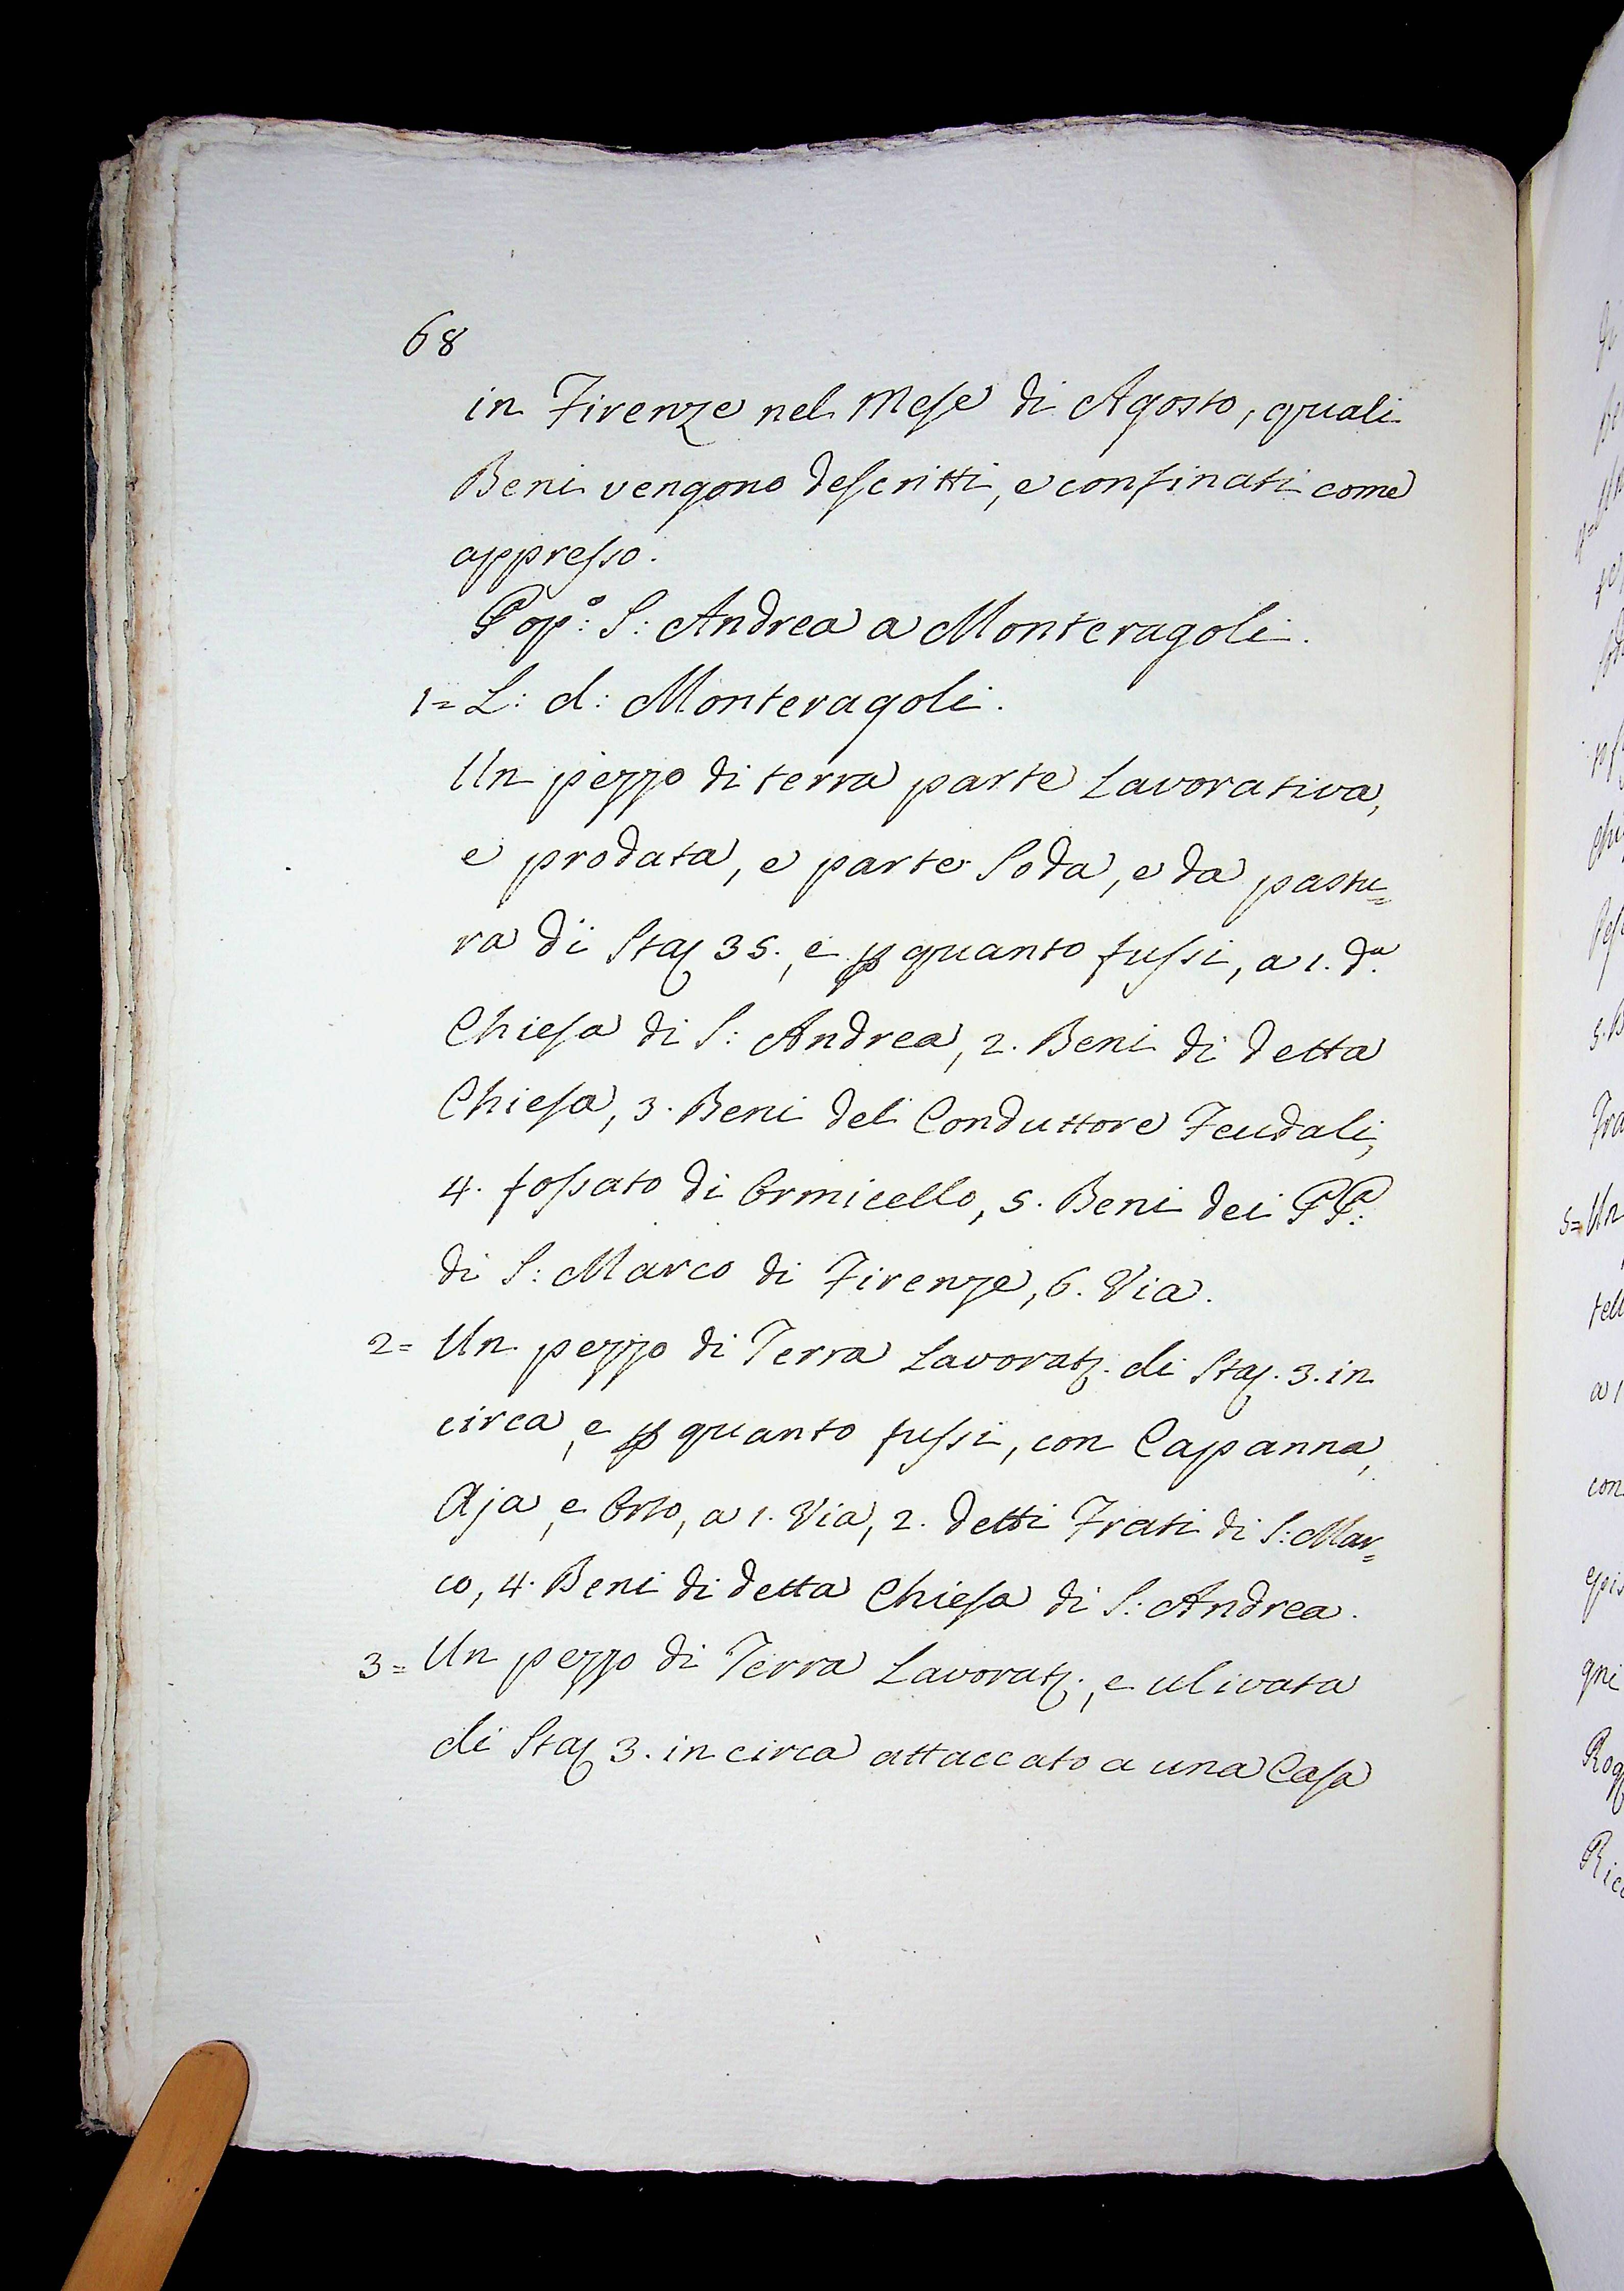 68
in Firenze nel Mese di Agosto, quali
Beni vengono descritti, e confinati come
appresso.
Pop:° S: Andrea a Monteragoli.
1= L: d: Monteragoli.
Un pezzo di terra parte Lavorativa,
e prodata, e parte Soda, e da pastu=
ra di Staj 35., e p quanto fussi, a 1. d.ª
Chiesa di S: Andrea, 2. Beni di detta
Chiesa, 3. Beni del Conduttore Feudali,
4. fossato di Ormicello, 5. Beni dei PP:
di S: Marco di Firenze, 6. Via.
2= Un pezzo di Terra Lavorat. di Staj. 3. in
circa, e p quanto fussi, con Capanna,
Aja, e Orto, a 1. Via, 2. detti Frati di S: Mar=
co, 4. Beni di detta Chiesa di S: Andrea.
3= Un pezzo di Terra Lavorat., e ulivata
di Staj 3. in circa attaccato a una Casa